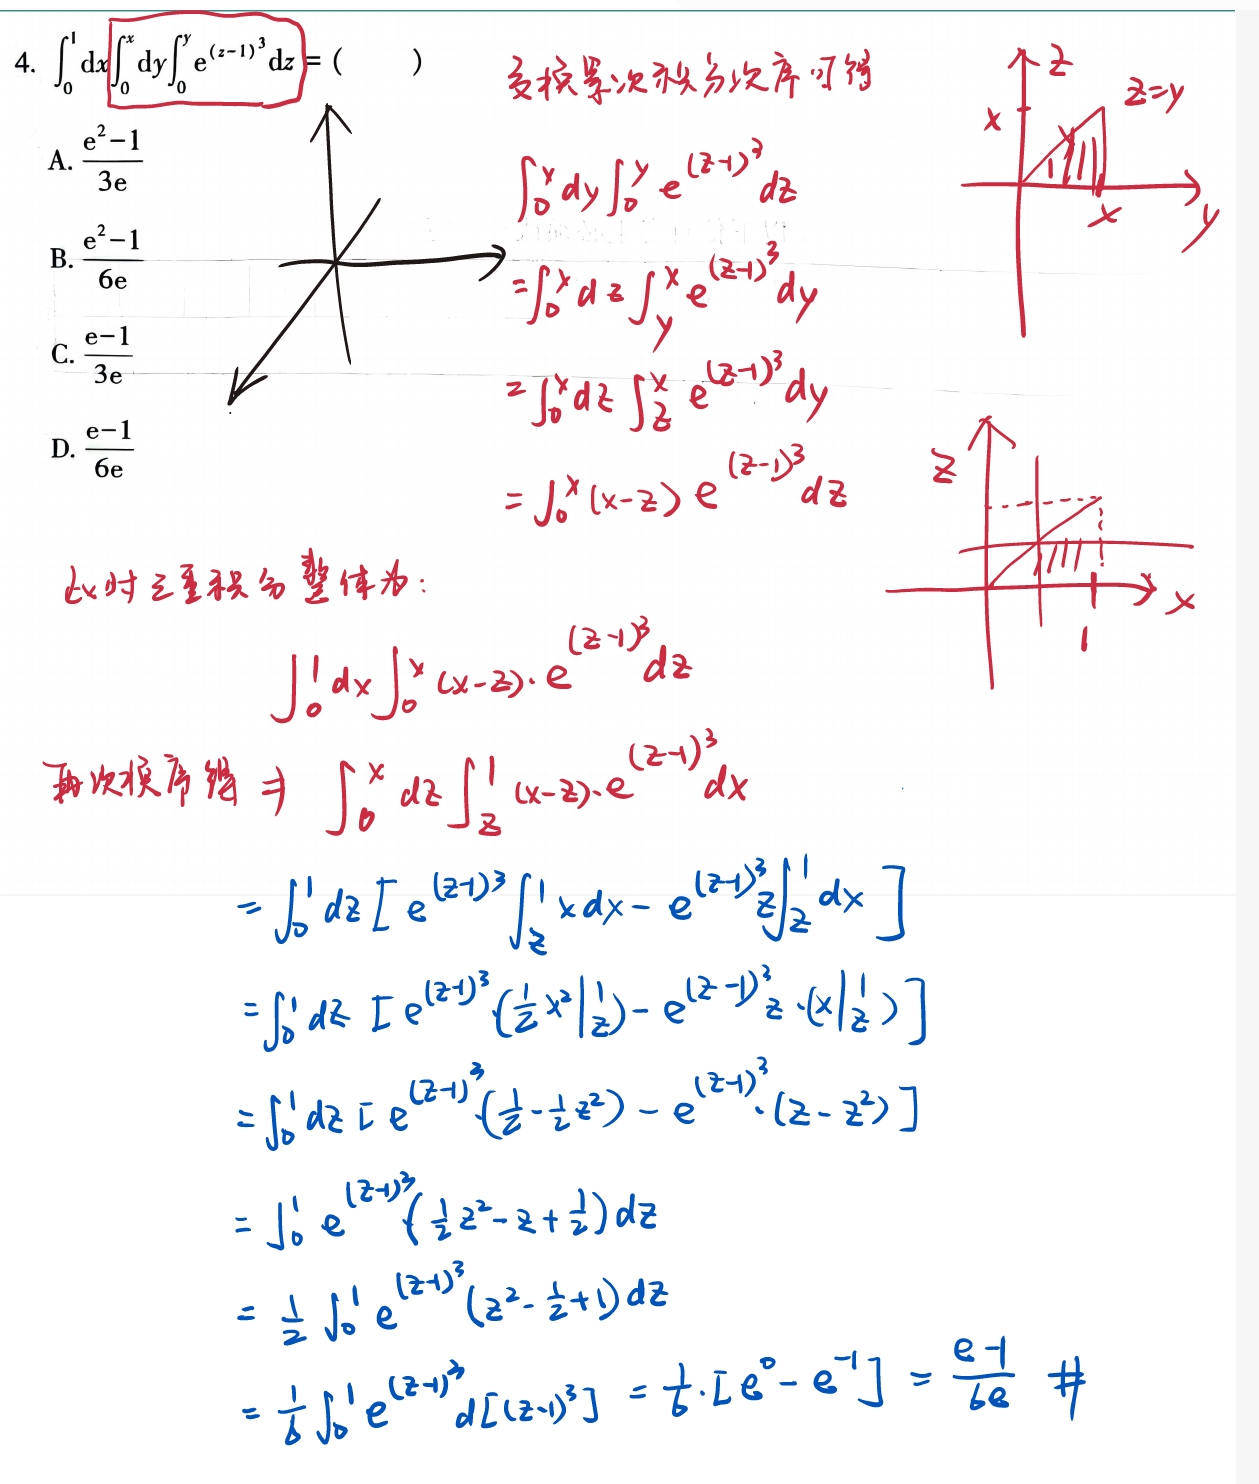 4. ∫₀¹dx∫₀ˣdy∫₀ʸe^{(z-1)³}dz = (    )
A. (e²-1)/(3e)
B. (e²-1)/(6e)
C. (e-1)/(3e)
D. (e-1)/(6e)
交换累次积分次序可得
∫₀ˣdy∫₀ʸe^{(z-1)³}dz
=∫₀ˣdz∫_y^x e^{(z-1)³}dy
=∫₀ˣdz∫_z^x e^{(z-1)³}dy
=∫₀ˣ(x-z)e^{(z-1)³}dz
z
z=y
x
x
y
z
x
1
此时三重积分整体为:
∫₀¹dx∫₀ˣ(x-z)·e^{(z-1)³}dz
再次换序得⇒ ∫₀ˣdz∫_z^1(x-z)·e^{(z-1)³}dx
=∫₀¹dz[e^{(z-1)³}∫_z^1 xdx-e^{(z-1)³}z∫_z^1dx]
=∫₀¹dz[e^{(z-1)³}(½x²|_z^1)-e^{(z-1)³}z·(x|_z^1)]
=∫₀¹dz[e^{(z-1)³}·(½-½z²)-e^{(z-1)³}·(z-z²)]
=∫₀¹e^{(z-1)³}(½z²-z+½)dz
=½∫₀¹e^{(z-1)³}(z²-½+1)dz
=⅙∫₀¹e^{(z-1)³}d[(z-1)³]=⅙·[e⁰-e⁻¹]=(e-1)/(6e) #